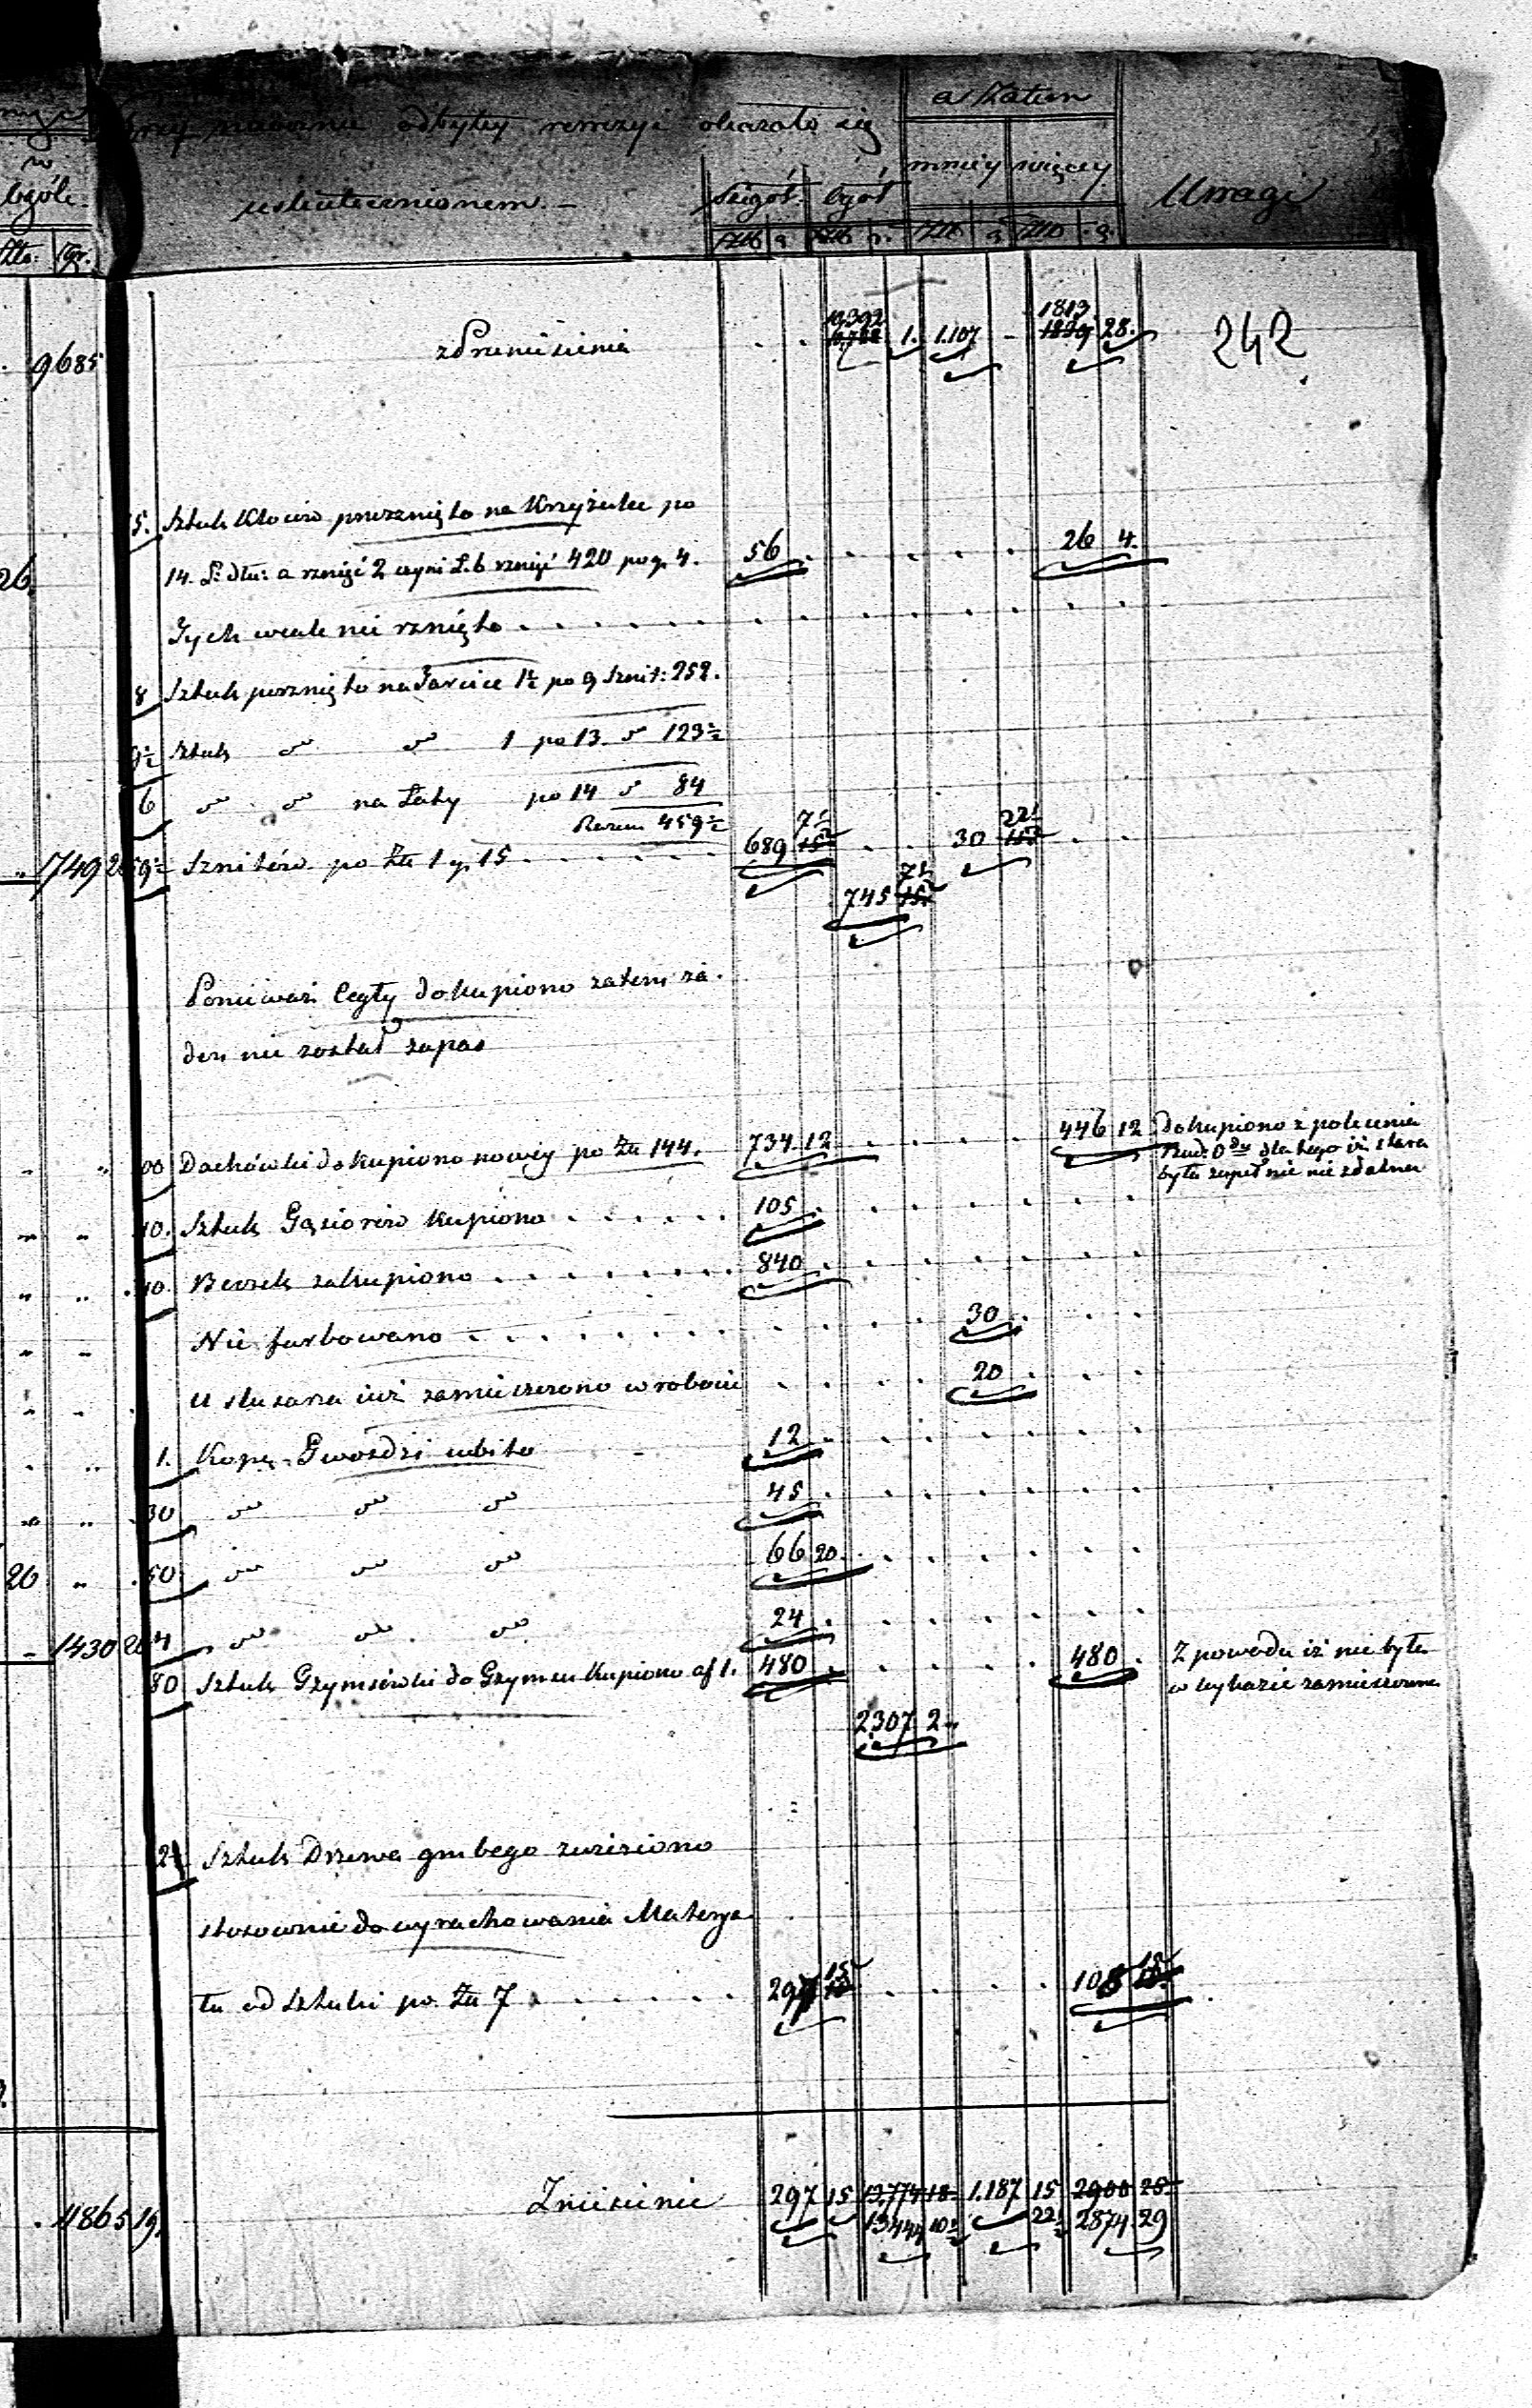 w
ogóle
Złt. gr.
przy odbytey rewizyi okazało się
uskutecznionem. –
a Zatem
szczegół. ogół
mniey więcey
Uwagi
g. g. g. g.
9685
z Przeniesienia 10,392 1. 1.107 – 1813. 28.
242
5. Sztuk Klociw porznięto na Krzyżulce po
26. 14. Ł: dłu: a rznięć 2 czyni Ł. b rznięć 420 po g. 4. 56 . 26 4.
Tych wcale nie rznięto
8 Sztuk porznięto na Tarcice 1½ po 9 Sznit: 252.
9½ Sztuk 〃 〃 1 po 13. 〃 123½
6 〃 〃 na Łaty po 14 〃 84
Razem 459½
749 2 59½ Sznitów po Złt 1 g. 15 689 7½ 30 22½
745 7½
Ponieważ Cegły dokupiono zatem ża-
den nie został zapas
00 Dachówki dokupiono nowey po Złt 144. 734 12 446 12 dokupiono z polecenia
dla tego iż stara
była zupełnie nie zdatna
10. Sztuk Gąsiorów kupiono 105
40. Beczek zakupiono 840
Nie farbowano 30
U ślusarza iuż zamieszczono w robocie 20
1. Kopę Gwozdzi ubito 12
30 〃 〃 〃 45
20 50 〃 〃 〃 66 20
1430 26 4 〃 〃 〃 24
80 Sztuk Gzymsówki do Gzymsu kupiono af 1. 480 480 Z powodu iż nie była
w wykazie zamieszczona
2307 2
Sztuk Drzewa grubego zwieziono
stosownie do wyrachowania Materya-
łu od sztuki po Złt 7 297 15 108
Zniesienie 297 15 13,774 18 1.187 15 2900 28
11865 19. 13444 10½ 22½ 2874 29